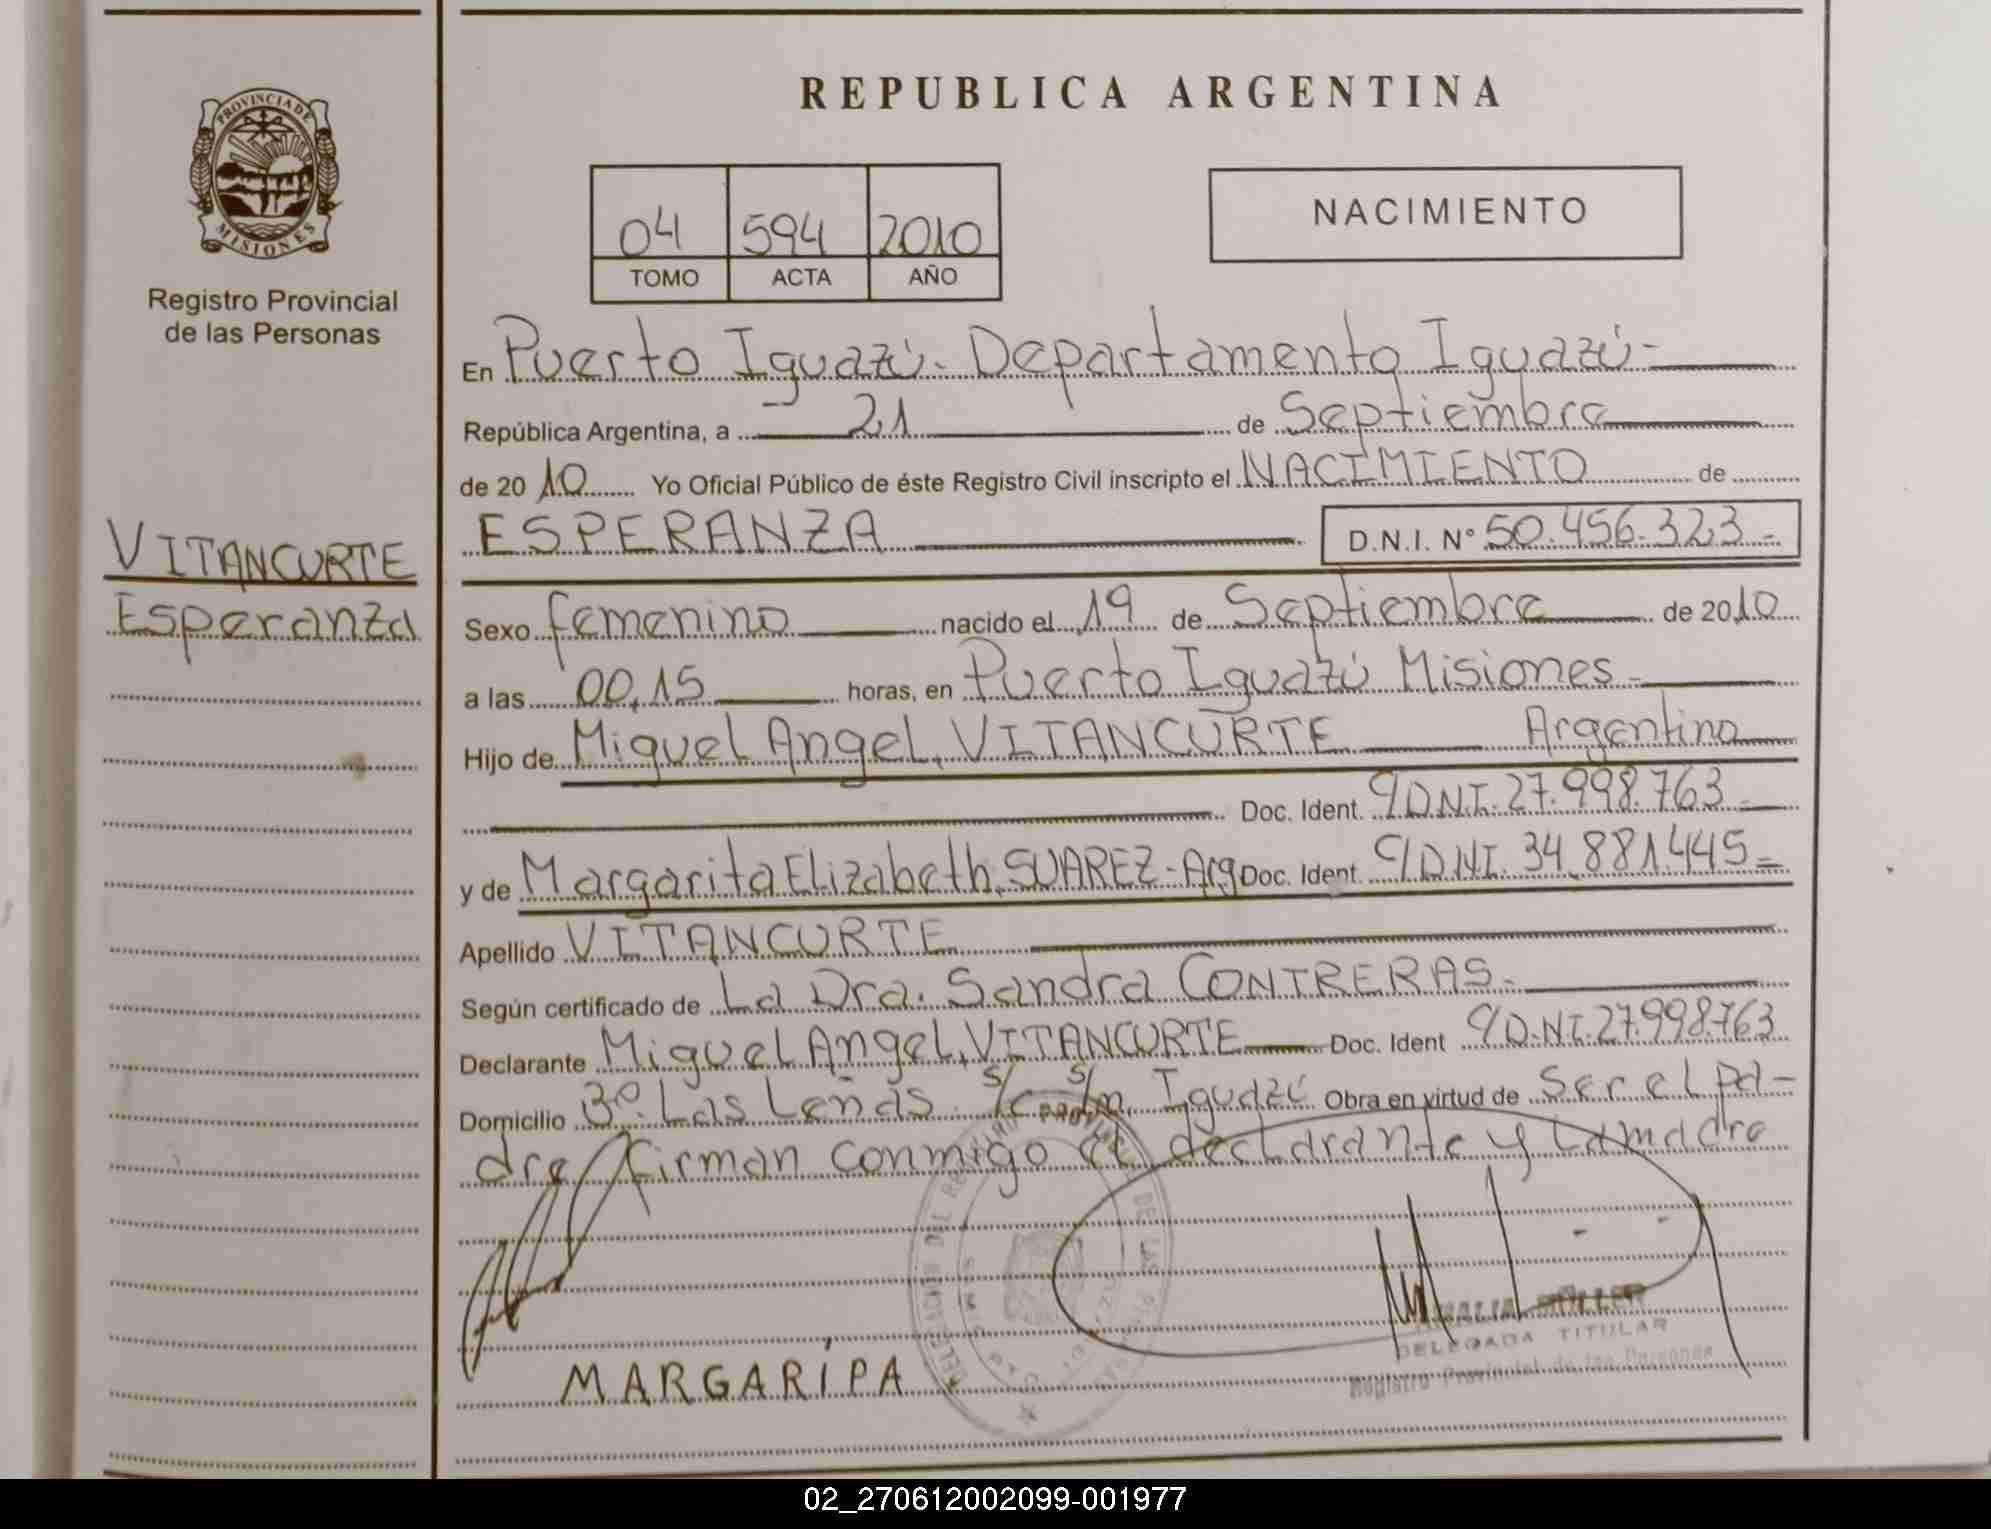 PROVINCIA DE
MISIONES
Registro Provincial
de las Personas
VITANCURTE
Esperanza
REPUBLICA ARGENTINA
04 594 2010
TOMO ACTA AÑO
NACIMIENTO
En Puerto Iguazú - Departamento Iguazú -
República Argentina, a 21 de Septiembre
de 2010 Yo Oficial Público de éste Registro Civil inscripto el NACIMIENTO de
ESPERANZA D.N.I. N° 50.456.323-
Sexo femenino nacido el 19 de Septiembre de 2010
a las 00,15 horas, en Puerto Iguazú Misiones -
Hijo de Miguel Angel, VITANCURTE Argentina
Doc. Ident. D.N.I. 27.998.763 -
y de Margarita Elizabeth, SUAREZ - Arg Doc. Ident D.N.I. 34.881.445 =
Apellido VITANCURTE
Según certificado de La Dra. Sandra CONTRERAS -
Declarante Miguel Angel, VITANCURTE Doc. Ident D.N.I. 27.998.763
Domicilio B°. Las Leñas. s/c s/n, Iguazú Obra en virtud de Ser el pa-
dre firman conmigo el declarante y la madre
MARGARIPA
DELEGADA TITULAR
Registro Provincial de las Personas
02_270612002099-001977